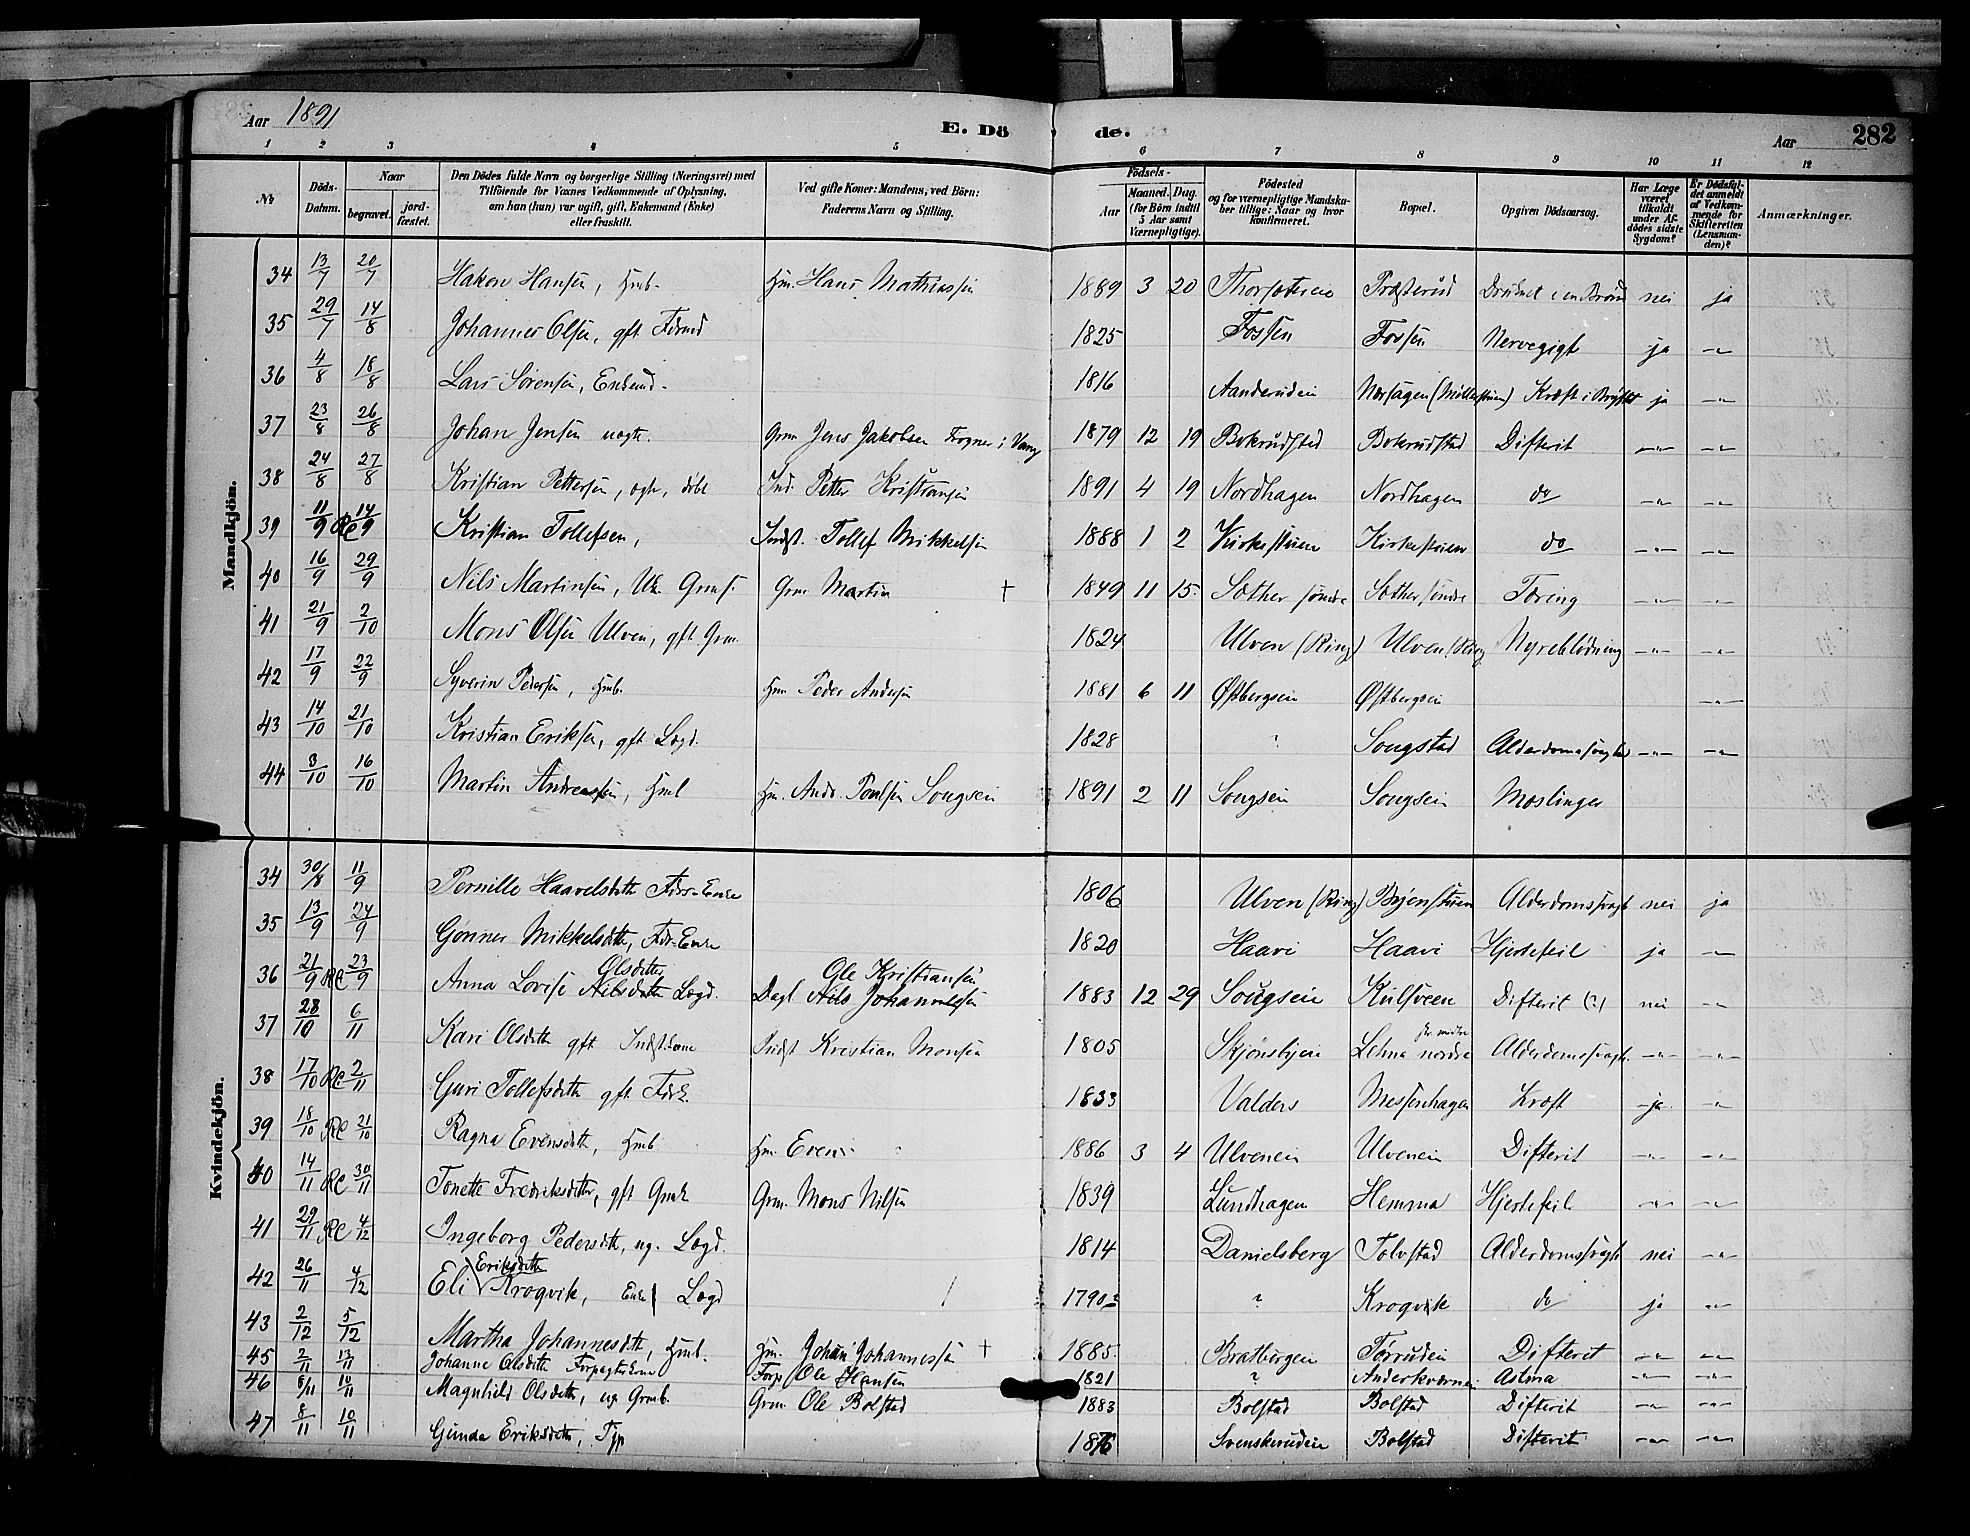 Aar 1891 E. Dö de. Aar 282
1 2 3 4 5 6 7 8 9 10 11 12
No Döds-Datum. Naar begravet. jordfæstet. Den Dödes fulde Navn og borgerlige Stilling (Næringsvei) med Tilföiende for Voxnes Vedkommende af Oplysning, om han (hun) var ugift, gift, Enkemand (Enke) eller fraskilt. Ved gifte Koner: Mandens, ved Börn: Faderens Navn og Stilling. Födsels- Aar Maaned. Dag. (for Börn indtil 5 Aar samt Værnepligtige). Födested og for værnepligtige Mandskaber tillige: Naar og hvor konfirmeret. Bopæl. Opgiven Dödsaarsag. Har Læge været tilkaldt under Afdödes sidste Sygdom? Er Dödsfaldet anmeldt af Vedkommende for Skifteretten (Lensmanden)? Anmærkninger.
Mandkjön.
34 13/7 20/7 Hakon Hansen, Hmb. Hm. Hans Mathiassen 1889 3 20 Præsterud Druknet i en Brønd nei ja
35 29/7 14/8 Johannes Olsen, gft 1825 Fossen Fossen Nervegigt ja -"-
36 4/8 18/8 Lars Sørensen, Enkemd. 1816 Aanderudein Kræft i Brystet ja -"-
37 23/8 26/8 Johan Jensen uægte. Grm Jens Jakobsen Frogner i Vang 1879 12 19 Bokrudstad Bokrudstad Difterit -"- -"-
38 24/8 27/8 Kristian Pettersen, ægte, døbt Ind. Petter Kristiansen 1891 4 19 Nordhagen Nordhagen do -"- -"-
39 11/9 RC 14/9 Kristian Tollefsen, Indst. Tollef Mikkelsen 1888 1 2 Kirkestuen Kirkestuen do -"- -"-
40 16/9 29/9 Nils Martinsen, Uk. Grms. Grm Martin + 1849 11 15 Sæther søndre Sæther søndre Tæring -"- -"-
41 21/9 2/10 Mons Olsen Ulven, gft. Grm. 1824 Ulven (Ring) Ulven (Ring Nyreblødning -"- -"-
42 17/9 22/9 Syverin Pedersen, Hmb. Hm Peder Andersen 1881 6 11 Østbergsein Østbergsein -"-
43 14/10 21/10 Kristian Eriksen, gft Lægd. 1828 ? Songstad -"- -"-
44 3/10 16/10 Martin Andreassen, Hmb Hm. Andr. Poulsen Songsein 1891 2 11 Songsein Songsein Meslinger
Kvindekjön.
34 30/8 11/9 Pernille Haavelsdtr 1806 Ulven (Ring) Alderdomssvagh nei ja
35 13/9 24/9 Gonner Mikkelsdtr, 1820 Haavi Haavi Hjertefeil ja -"-
Olsdatter Ole Kristiansen
36 21/9 RC 23/9 Anna Lovise Nilsdatter Lægd. Dagl Nils Johannessen 1883 12 29 Songsein Kulsveen Difterit (?) nei -"-
37 28/10 6/11 Kari Olsdtr gft Indst Kristian Monsen 1805 Skjønsbyein nordre Alderdomssvagh. -"- -"-
38 17/10 RC 2/11 Guri Tollefsdtr gft 1833 Valders Messenhagen Kræft ja -"-
39 18/10 RC 21/10 Ragna Evensdtr, Hmb Hm. Even 1886 3 4 Ulvenein Ulvenein Difterit -"- -"-
40 14/11 RC 30/11 Tonette Fredriksdtr, gft Grmk Grm. Mons Nilsen 1839 Lundhagen Hemma Hjertefeil -"- -"-
41 29/11 RC 4/12 Ingeborg Pedersdtr, ug. Lægd. 1814 Danielsberg Tolvstad Alderdomssvagh nei -"-
Eriksdtr
42 26/11 4/12 Eli Krogvik, Enke Lægd 1790 ? ? Krogvik do ja -"-
43 2/12 5/12 Martha Johannesdtr, Hmb. Hm. Johan Johannessen + 1885 Bratbergen Tørrudein Difterit -"- -"-
45 2/11 13/11 Johanne Olsdtr Forpagterkone Forp Ole Hansen 1821 ? Anderkværnen Astma -"- -"-
46 8/11 10/11 Magnhild Olsdtr, ug Grmb. Grm. Ole Bolstad 1883 Bolstad Bolstad Difterit -"- -"-
47 8/11 10/11 Gunda Eriksdtr, Tjp 1876 Svenskerudein Bolstad Difterit -"- -"-